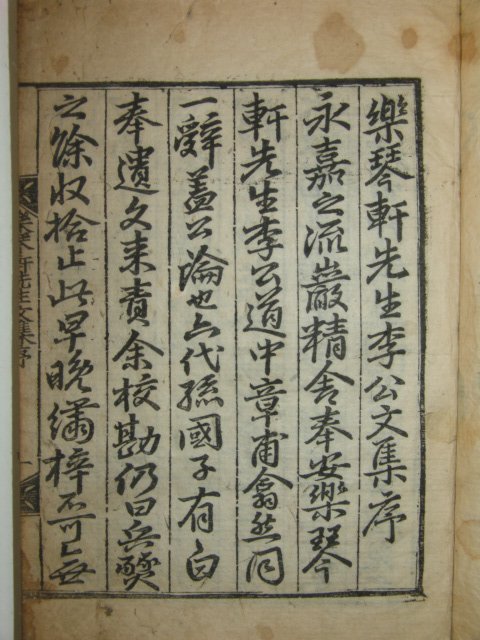 樂琴軒先生李公文集序
永嘉之流巖精舍奉安樂琴
軒先生李公道中章甫翕然同
一辭盖公論也六代孫國子有白
奉遺文來責余校勘仍曰兵燹
之餘収拾止此早晩繡梓不可已無
樂琴軒先生文集序
一